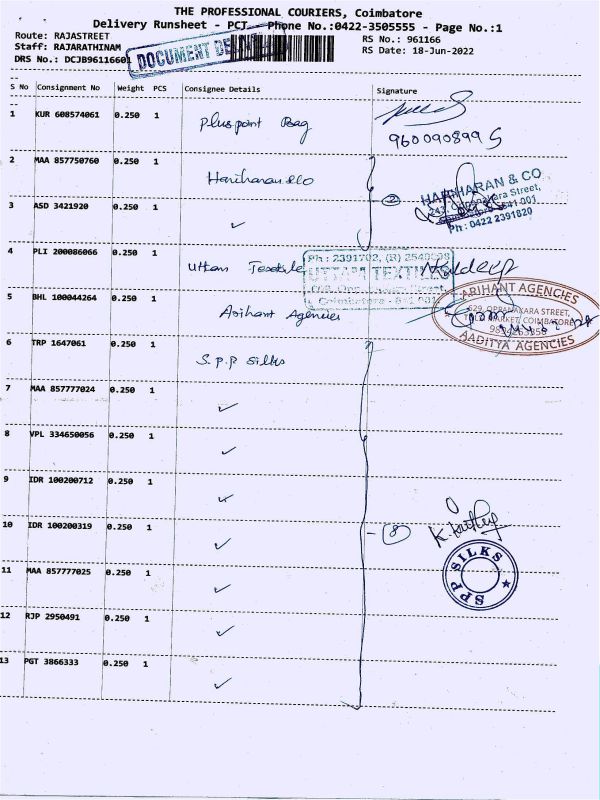 THE PROFESSIONAL COURIERS, Coimbatore
Delivery Runsheet - PCT - Phone No.:0422-3505555 - Page No.:1
Route: RAJASTREET
RS No.: 961166
Staff: RAJARATHINAM
RS Date: 18-Jun-2022
DRS No.: DCJB96116601
DOCUMENT
S No Consignment No Weight PCS Consignee Details Signature
1 KUR 608574061 0.250 1 Pluspoint Bag
960090899 5
2 MAA 857750760 0.250 1 Hariharan &Co
2
HARIHARAN & CO
Street,
641 001
Ph : 0422 2391820
3 ASD 3421920 0.250 1 ✓
4 PLI 200086066 0.250 1 Uttam Textile
Ph : 2391702, (R)
UTTAM TEXTILES
Coimbatore - 641 001
5 BHL 100044264 0.250 1 Arihant Agencies
ARIHANT AGENCIES
629, OPPANAKARA STREET,
MARKET, COIMBATORE
AADITYA AGENCIES
6 TRP 1647061 0.250 1 S.P.P Silks
7 MAA 857777024 0.250 1 ✓
8 VPL 334650056 0.250 1 ✓
9 IDR 100200712 0.250 1 ✓
10 IDR 100200319 0.250 1 ✓
- 8
SPP SILKS
11 MAA 857777025 0.250 1 ✓
12 RJP 2950491 0.250 1 ✓
13 PGT 3866333 0.250 1 ✓